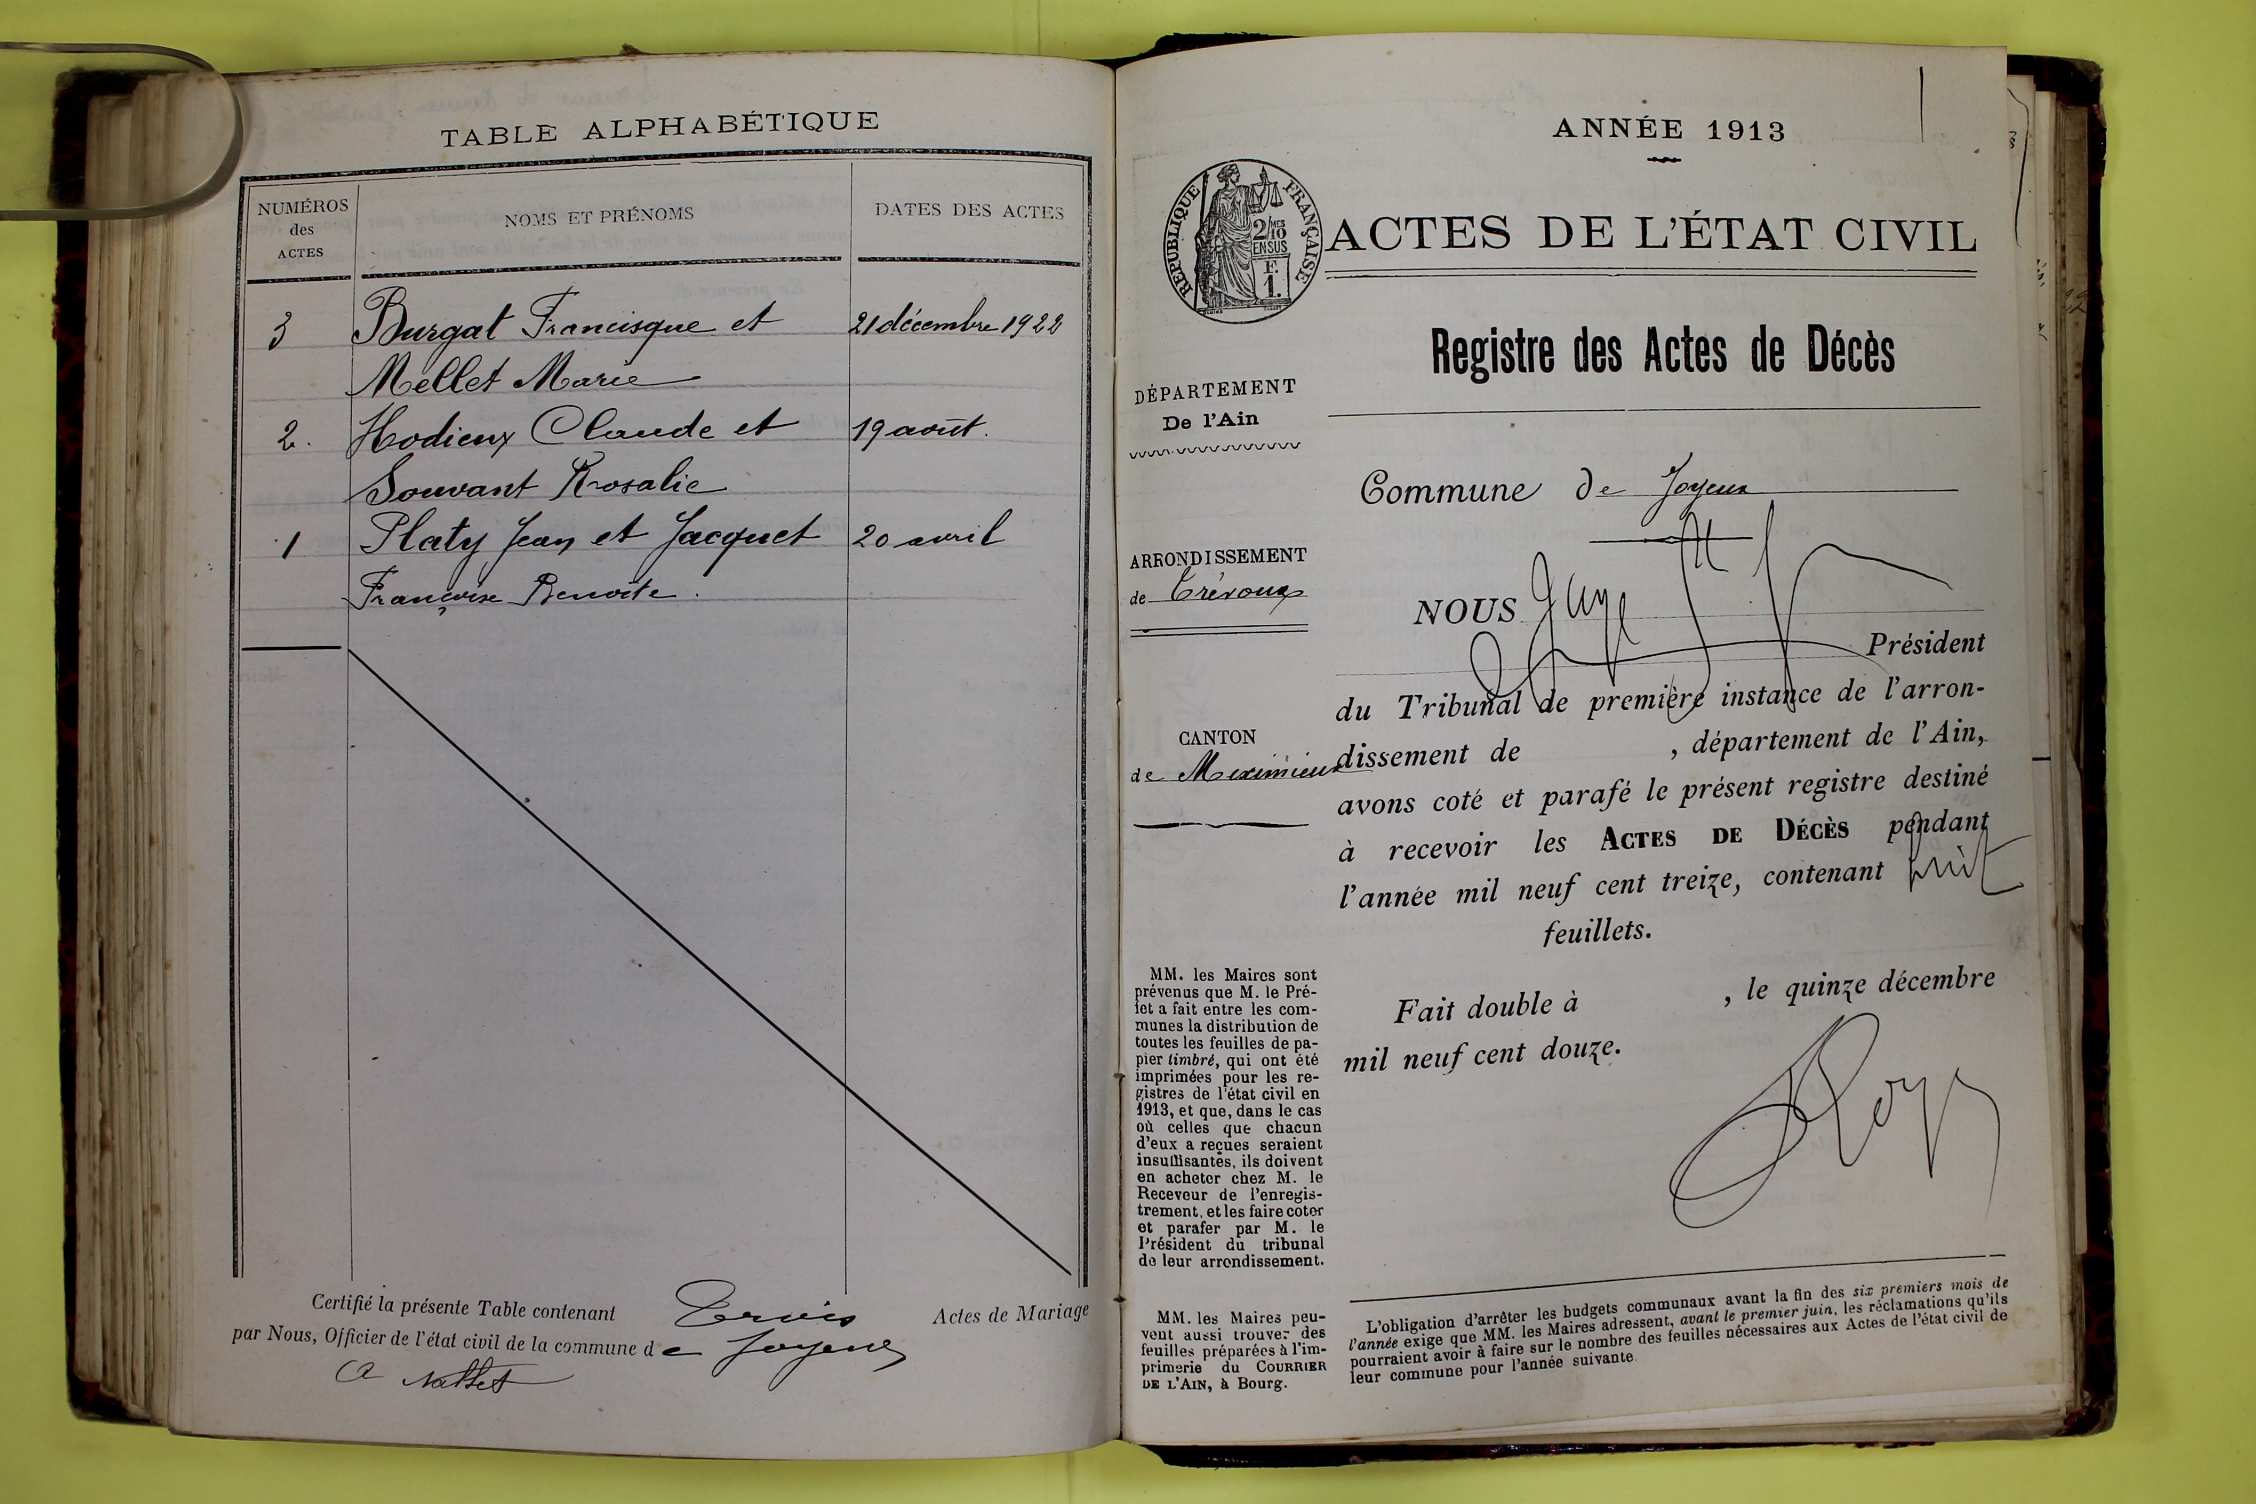 TABLE ALPHABÉTIQUE
NUMÉROS
des
ACTES
NOMS ET PRÉNOMS
DATES DES ACTES
3 Burgat Francisque et 21 décembre 1922
Mellet Marie
2. Hodieux Claude et 19 août.
Souvant Rosalie
1 Platy Jean et Jacquet 20 avril
Françoise Benoîte.
Certifié la présente Table contenant Trois Actes de Mariage
par Nous, Officier de l'état civil de la commune de Joyeux
ANNÉE 1913
RÉPUBLIQUE FRANÇAISE
2/10 MES
EN SUS
F.
1.
ACTES DE L'ÉTAT CIVIL
Registre des Actes de Décès
DÉPARTEMENT
De l'Ain
ARRONDISSEMENT
de Trévoux
CANTON
de Meximieux
MM. les Maires sont
prévenus que M. le Pré-
fet a fait entre les com-
munes la distribution de
toutes les feuilles de pa-
pier timbré, qui ont été
imprimées pour les re-
gistres de l'état civil en
1913, et que, dans le cas
où celles que chacun
d'eux a reçues seraient
insuffisantes, ils doivent
en acheter chez M. le
Receveur de l'enregis-
trement, et les faire coter
et parafer par M. le
Président du tribunal
de leur arrondissement.
MM. les Maires peu-
vent aussi trouver des
feuilles préparées à l'im-
primerie du COURRIER
DE L'AIN, à Bourg.
Commune de Joyeux
NOUS
Président
du Tribunal de première instance de l'arron-
dissement de , département de l'Ain,
avons coté et parafé le présent registre destiné
à recevoir les ACTES DE DÉCÈS pendant
l'année mil neuf cent treize, contenant huit
feuillets.
Fait double à , le quinze décembre
mil neuf cent douze.
L'obligation d'arrêter les budgets communaux avant la fin des six premiers mois de
l'année exige que MM. les Maires adressent, avant le premier juin, les réclamations qu'ils
pourraient avoir à faire sur le nombre des feuilles nécessaires aux Actes de l'état civil de
leur commune pour l'année suivante.